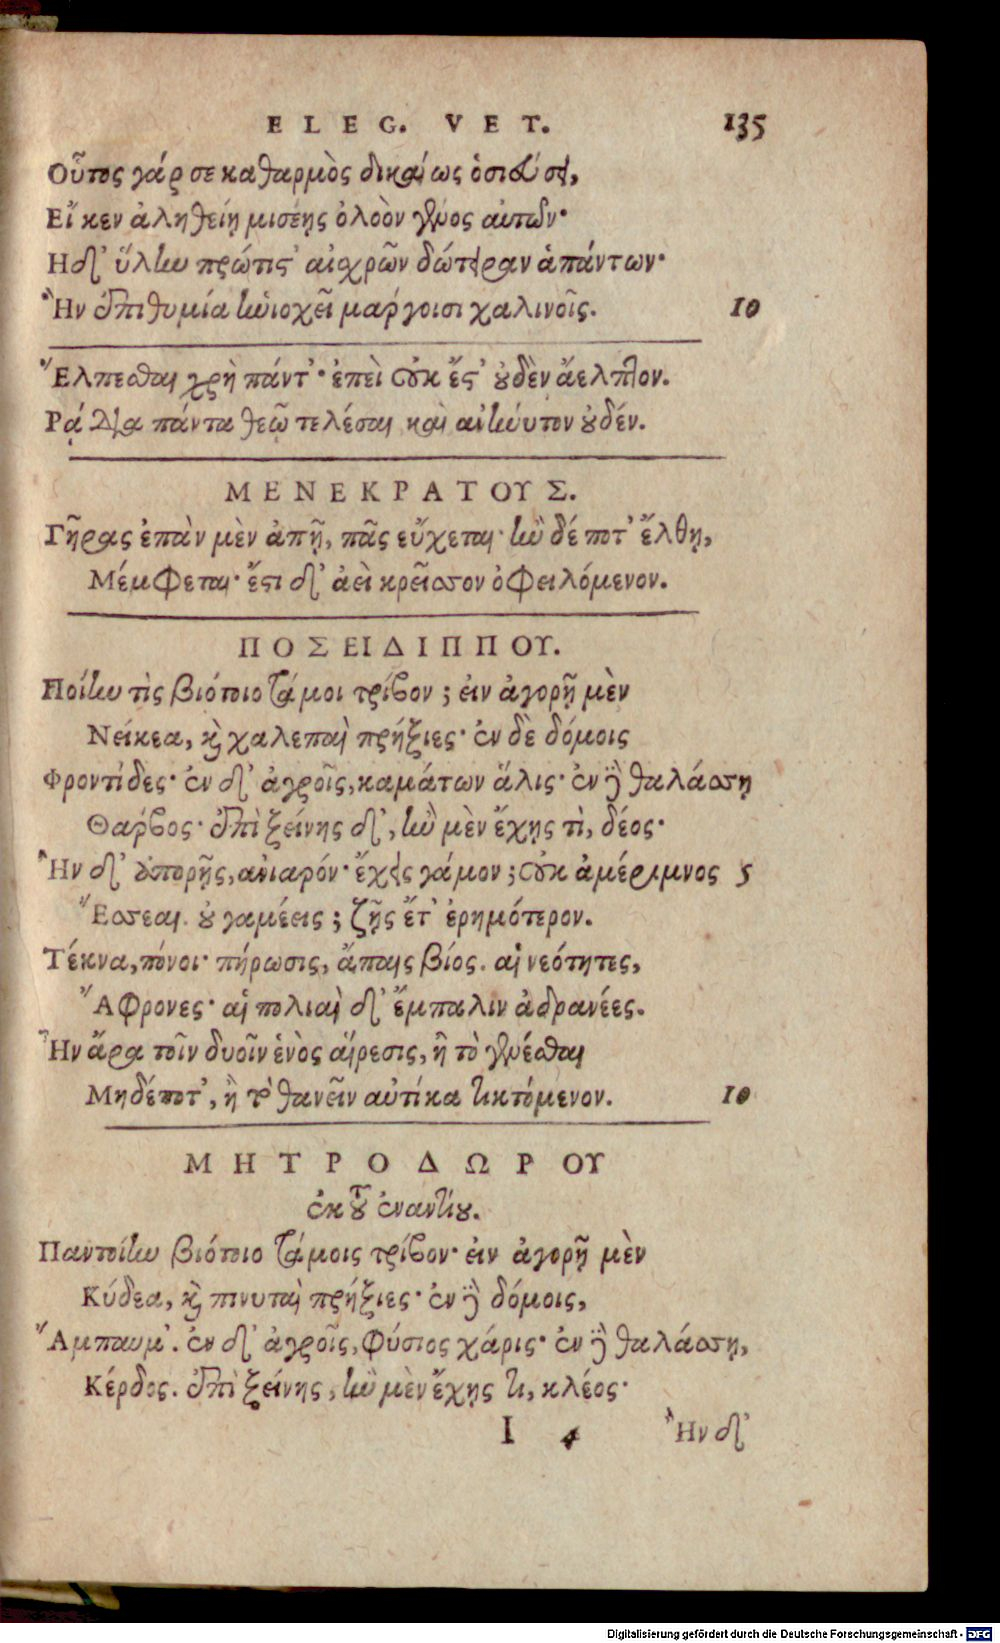 ELEG. VET. 135
Οὗτος γάρ σε καθαρμὸς δικαίως ὁσιώσει,
Εἴ κεν ἀληθείῃ μισέῃς ὀλοὸν γένος αὐτῶν·
Ηδ' ὕλην πρώτις' αἰσχρῶν δώτειραν ἁπάντων·
Ἢν ἐπιθυμία ἡνιοχεῖ μάργοισι χαλινοῖς. 10
Ἔλπεσθαι χρὴ πάντ'· ἐπεὶ οὐκ ἔς' οὐδὲν ἄελπτον.
Ρᾴδια πάντα θεῷ τελέσαι καὶ ἀνήνυτον οὐδέν.
ΜΕΝΕΚΡΑΤΟΥΣ.
Γῆρας ἐπὰν μὲν ἀπῇ, πᾶς εὔχεται· ἢν δέ ποτ' ἔλθῃ,
Μέμφεται· ἔςι δ' ἀεὶ κρεῖσσον ὀφειλόμενον.
ΠΟΣΕΙΔΙΠΠΟΥ.
Ποίην τὶς βιότοιο τάμοι τρίβον; εἰν ἀγορῇ μὲν
Νείκεα, καὶ χαλεπαὶ πρήξιες· ἐν δὲ δόμοις
Φροντίδες· ἐν δ' ἀγροῖς, καμάτων ἅλις· ἐν δὲ θαλάσσῃ
Θάρβος· ἐπὶ ξείνης δ', ἢν μὲν ἔχῃς τὶ, δέος·
Ἢν δ' ἀπορῇς, ἀνιαρόν· ἔχεις γάμον; οὐκ ἀμέριμνος 5
Ἔσσεαι. οὐ γαμέεις; ζῇς ἔτ' ἐρημότερον.
Τέκνα, πόνοι· πήρωσις, ἄπαις βίος. αἱ νεότητες,
Ἄφρονες· αἱ πολιαὶ δ' ἔμπαλιν ἀδρανέες.
Ἦν ἄρα τοῖν δυοῖν ἑνὸς αἵρεσις, ἢ τὸ γενέσθαι
Μηδέποτ', ἢ τὸ θανεῖν αὐτίκα τικτόμενον. 10
ΜΗΤΡΟΔΩΡΟΥ
ἐκ τοῦ ἐναντίου.
Παντοίην βιότοιο τάμοις τρίβον· εἰν ἀγορῇ μὲν
Κύδεα, καὶ πινυταὶ πρήξιες· ἐν δὲ δόμοις,
Ἄμπαυμ'. ἐν δ' ἀγροῖς, Φύσιος χάρις· ἐν δὲ θαλάσσῃ,
Κέρδος. ἐπὶ ξείνης, ἢν μὲν ἔχῃς τι, κλέος·
I 4 Ἢν δ'
Digitalisierung gefördert durch die Deutsche Forschungsgemeinschaft - DFG